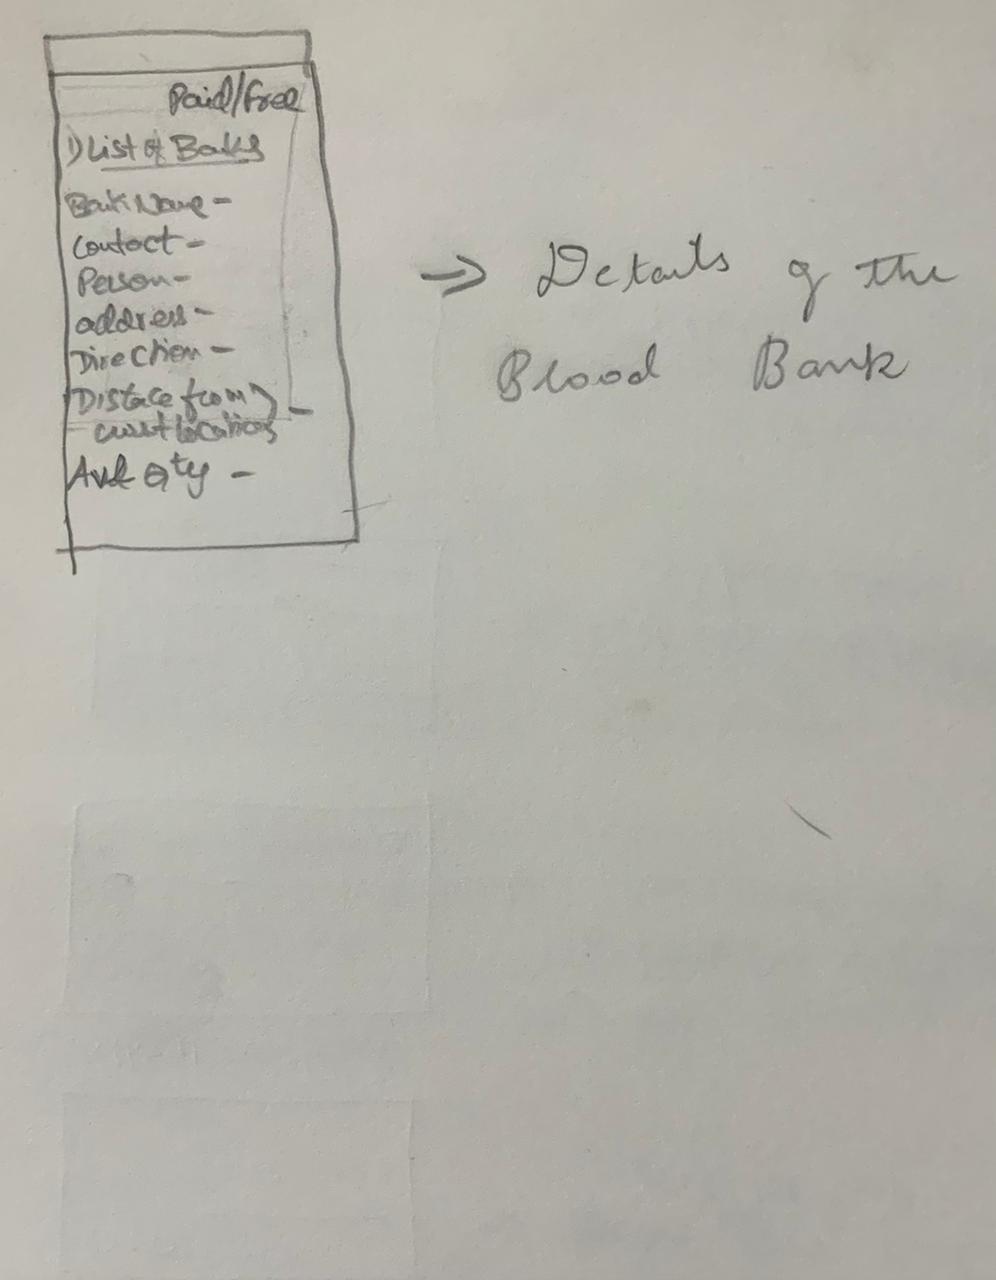 Paid/free
1) List of Banks
Bank Name -
Contact -
Person -
address -
Direction -
Distace from } -
curret location
Avl Qty -
→ Details of the
Blood Bank